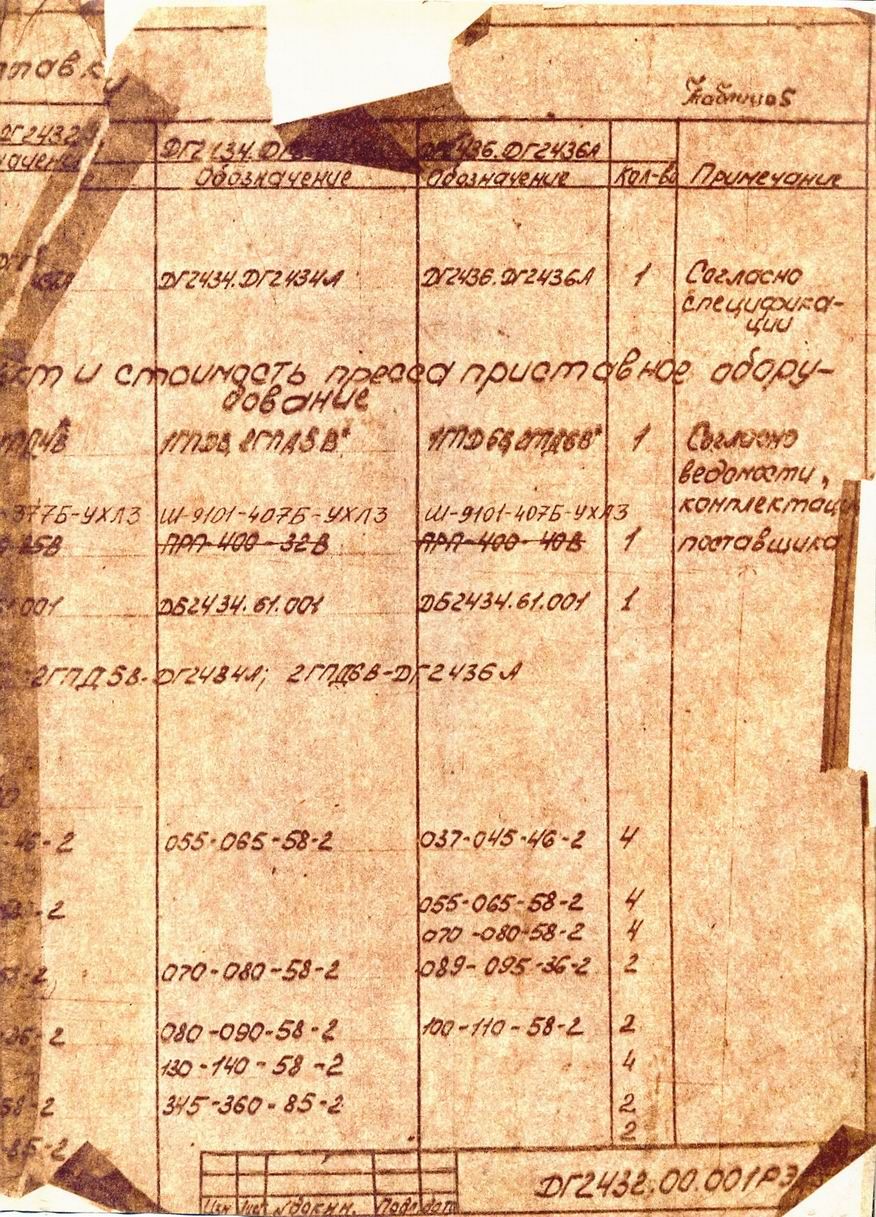 Таблица 5
ДГ2436.ДГ2436А
Обозначение Обозначение Кол-во Примечание
ДГ2434.ДГ2434А ДГ2436.ДГ2436А 1 Согласно
специфика-
ции
и стоимость пресса приставное обору-
дование
1ГПД6В, 2ГПД6В* 1 Согласно
ведомости,
-377Б-УХЛ3 Ш-9101-407Б-УХЛ3 Ш-9101-407Б-УХЛ3 комплектаци
ПРП-400-32В ПРП-400-40В 1 поставщика
.001 ДБ2434.61.001 ДБ2434.61.001 1
2ГПД5В-ДГ2434А; 2ГПД6В-ДГ2436А
-46-2 055-065-58-2 037-045-46-2 4
-2 055-065-58-2 4
070-080-58-2 4
-2 070-080-58-2 089-095-36-2 2
-2 080-090-58-2 100-110-58-2 2
130-140-58-2 4
58-2 345-360-85-2 2
-85-2 2
ДГ2432.00.001РЭ
Изм Лист № докум. Подп. дата